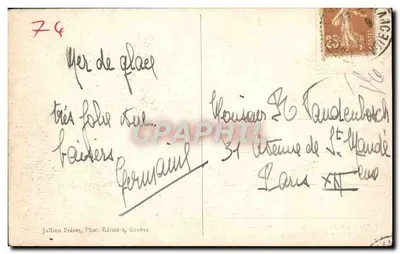 74
Mer de glace
très jolie vue.
baisers
Germaine
25
Monsieur R Vandenbosch
31 Avenue de St Mandé
Paris XII eme
CPAPHIL
Jullien Frères, Phot.-Editeurs, Genève